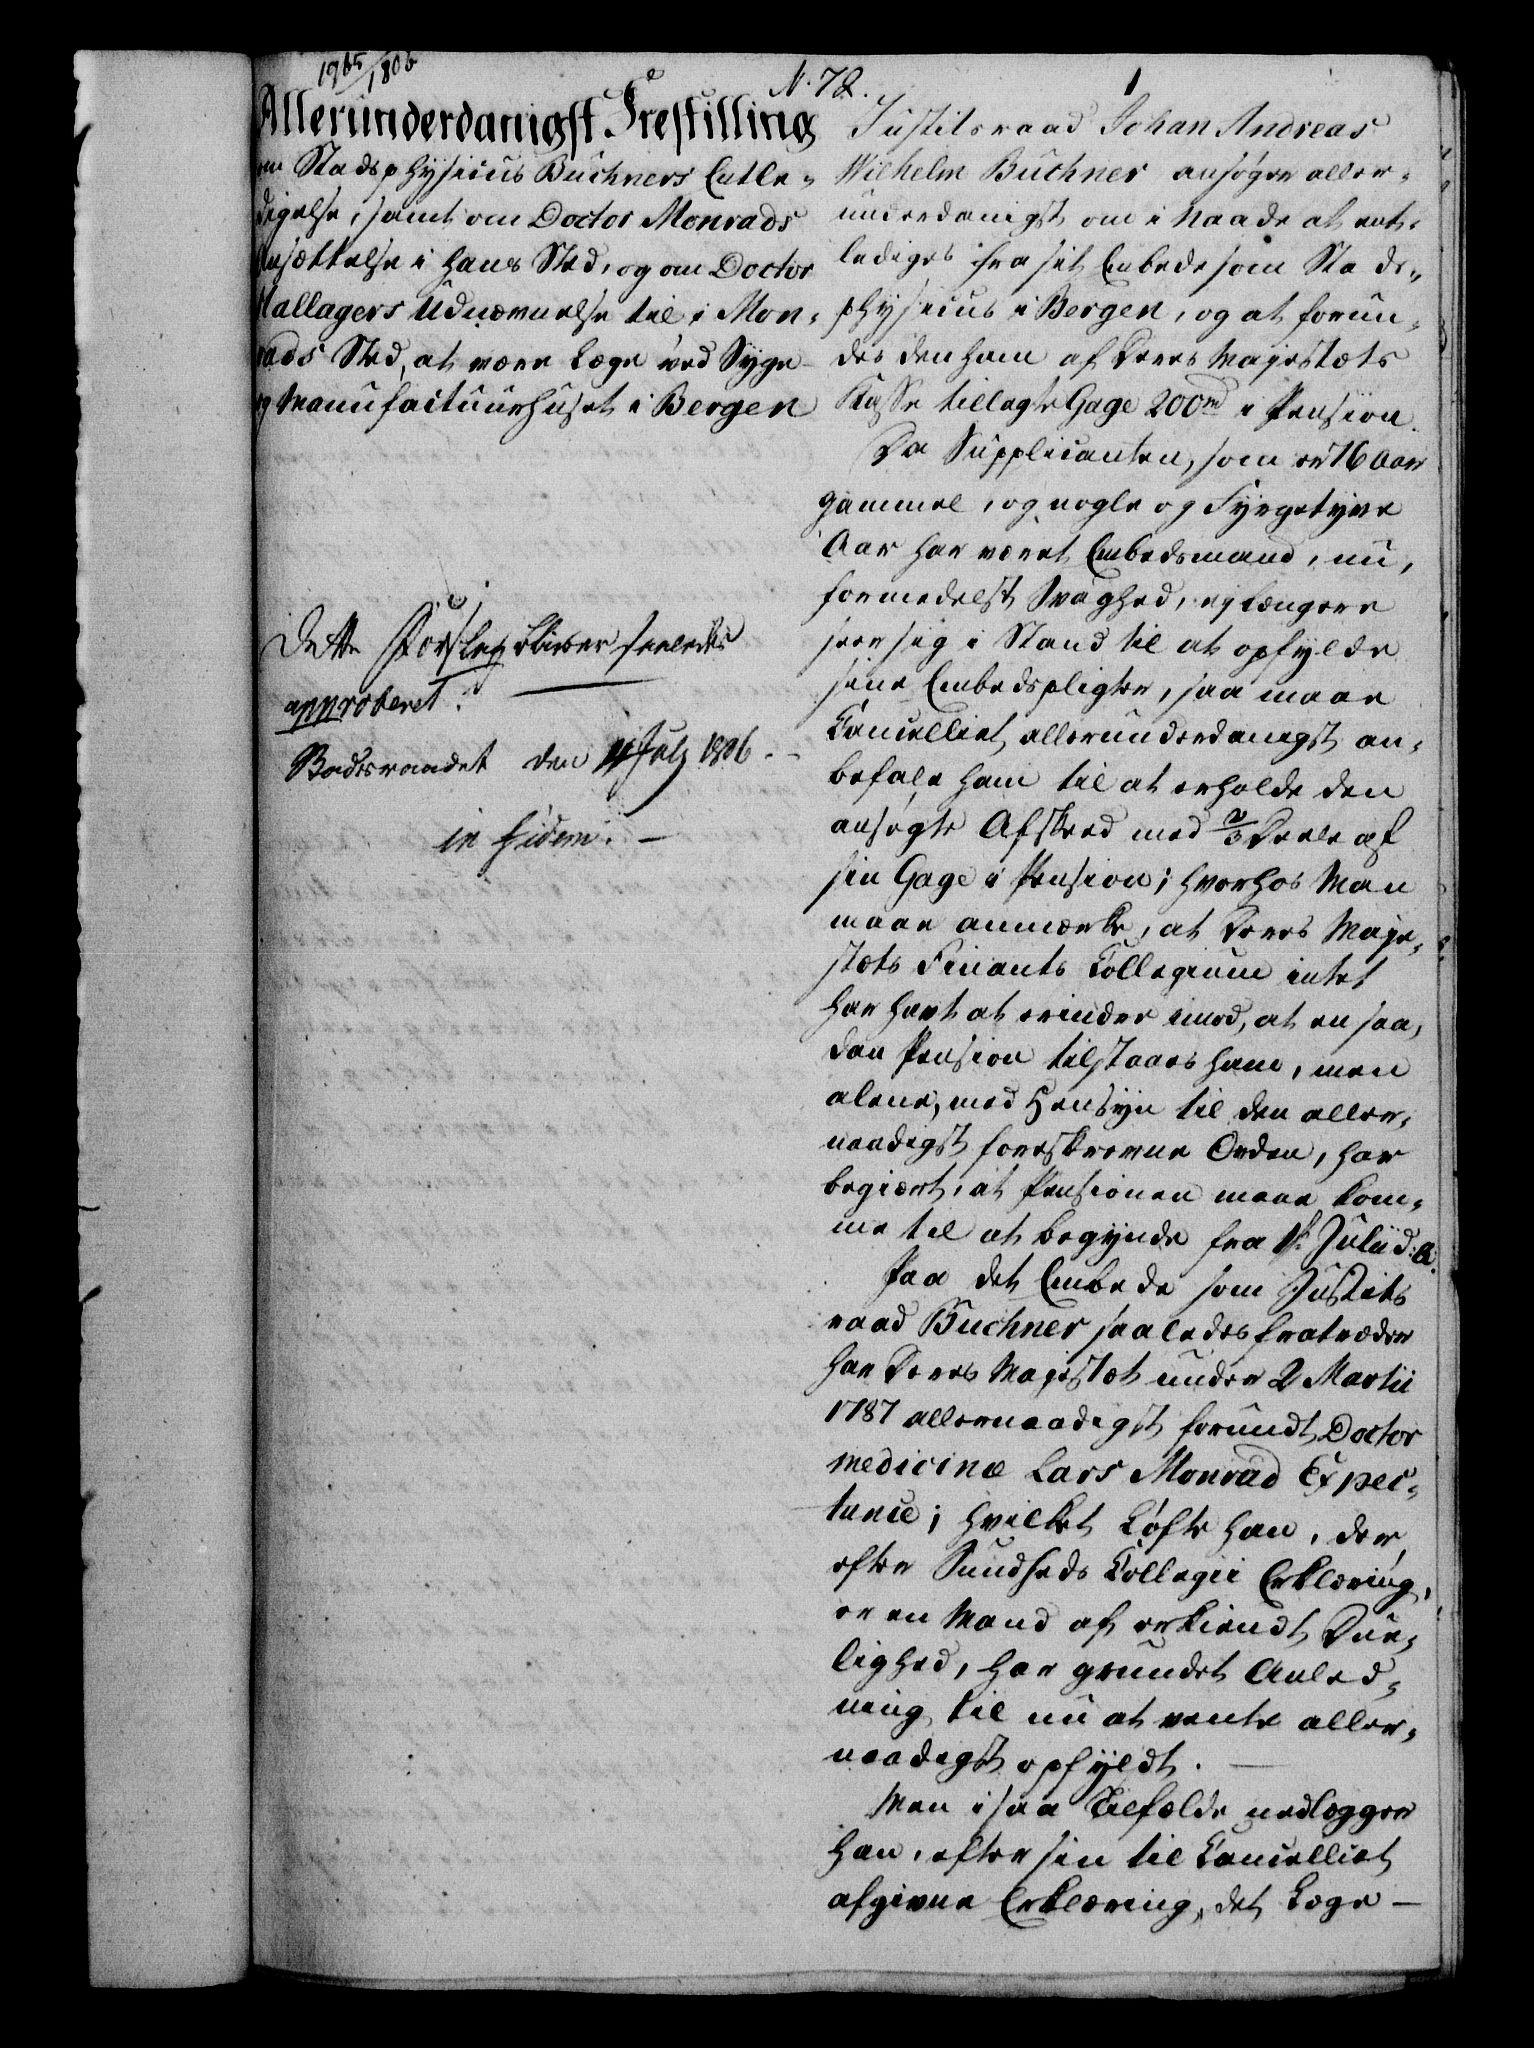 1965/1806
N. 78.
1
Allerunderdanigst Frestilling
om Stadsphysicus Buchners Entle-
digelse, samt om Doctor Monrads
Ansættelse i hans Sted, og om Doctor
Hallagers Udnævnelse til i Mon-
rads Sted, at være Læge ved Syge-
og Manufactuurhuset i Bergen
Dette Forslag bliver saaledes
approberet.
Badsraadet den 11 July 1806.
in fidem.
Justitsraad Johan Andreas
Wilhelm Buchner ansøger aller-
underdanigst om i Naade at ent-
lediges fra sit Embede som Stads-
physicus i Bergen, og at forun-
des den ham af Deres Majestæts
Kasse tillagte Gage 200 rd i Pension.
Da Supplicanten, som er 76 Aar
gammel, og nogle og Fyrgetyve
Aar har været Embedsmand, nu,
formedelst Svaghed, ej længere
seer sig i Stand til at opfylde
sine Embedspligter, saa maae
Cancelliet allerunderdanigst an-
befale ham til at erholde den
ansøgte Afskeed med 2/3 Deele af
sin Gage i Pension; hvorhos Man
maae anmærke, at Deres Maje-
stæts Finants Collegium intet
har havt at erindre imod, at en saa-
dan Pension tilstaaes ham, men
alene, med Hensyn til den aller-
naadigst foreskrevne Orden, har
begiært, at Pensionen maae kom-
me til at begynde fra 1ste Julii d: A:
Paa det Embede som Justits
raad Buchner saaledes fratræder
har Deres Majestæt under 2 Martii
1787 allernaadigst forundt Doctor
medicinæ Lars Monrad Expec-
tance; hvilket Løfte han, der,
efter Sundheds Collegii Erklæring,
er en Mand af erkiendt Due-
lighed, har grundet Anled-
ning til nu at vente aller-
naadigst opfyldt.
Men i saa Tilfælde nedlægger
han, efter sin til Cancelliet
afgivne Erklæring, det Læge-